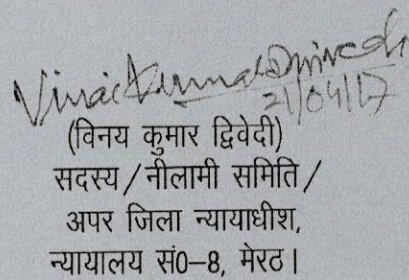 Vinai Kumar Dwivedi
21/04/17
(विनय कुमार द्विवेदी)
सदस्य/नीलामी समिति/
अपर जिला न्यायाधीश,
न्यायालय सं0-8, मेरठ।